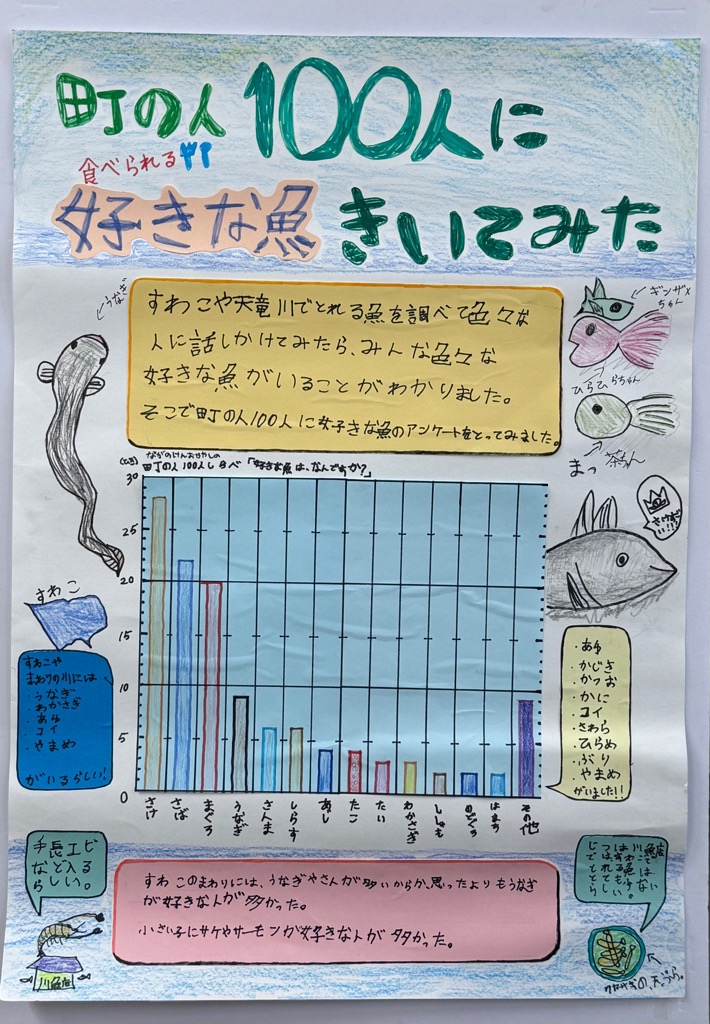 町の人100人に
食べられる
好きな魚きいてみた
うなぎ
すわこや天竜川でとれる魚を調べて色々な
人に話しかけてみたら、みんな色々な
好きな魚がいることがわかりました。
そこで町の人100人に好きな魚のアンケートをとってみました。
ギンザメ
ちゃん
ひらひらちゃん
まっ茶ちゃん
ながのけんおかやしの
町の人100人しらべ「好きな魚は、なんですか?」
(ひき)
30
25
20
15
10
5
0
さけ
さば
まぐろ
うなぎ
さんま
しらす
あじ
たこ
たい
わかさぎ
ししゃも
のどぐろ
はまち
その他
すわこ
すわこや
まわりの川には
・うなぎ
・わかさぎ
・あゆ
・コイ
・やまめ
がいるらしい!
・あゆ
・かじき
・かつお
・かに
・コイ
・さわら
・ひらめ
・ぶり
・やまめ
がいました!!
手長エビ
なども入る
らしい。
すわこのまわりには、うなぎやさんが多いからか、思ったよりもうなぎ
が好きな人が多かった。
小さい子にサケやサーモンが好きな人が多かった。
川魚店
わかさぎの、天ぷら。